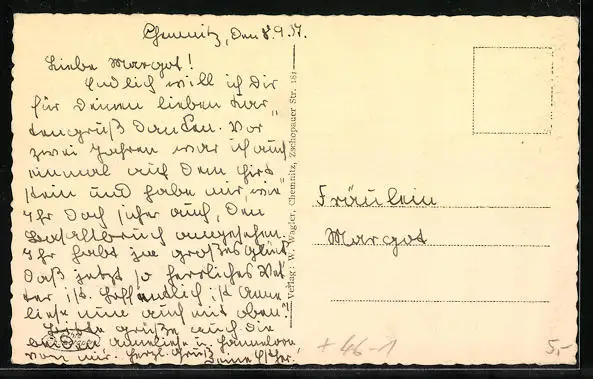 Chemnitz, den 8.9.37.
Liebe Margot!
Endlich will ich Dir
für Deinen lieben Kar-
tengruß danken. Vor
zwei Jahren war ich auch
einmal auf dem Hirt-
stein und habe mir, wie
Ihr doch sicher auch, den
Basaltbruch angesehen.
Ihr habt ja großes Glück,
daß jetzt so herrliches Wet-
ter ist. Hoffentlich ist Anne
liese nun auch mit oben?
grüße auch die
Anneliese u. Hannelore
von mir. Herzl. Gruß Deine Esther.
Verlag: W. Wagler, Chemnitz, Zschopauer Str. 181
Fräulein
Margot
+ 46-1
5,-